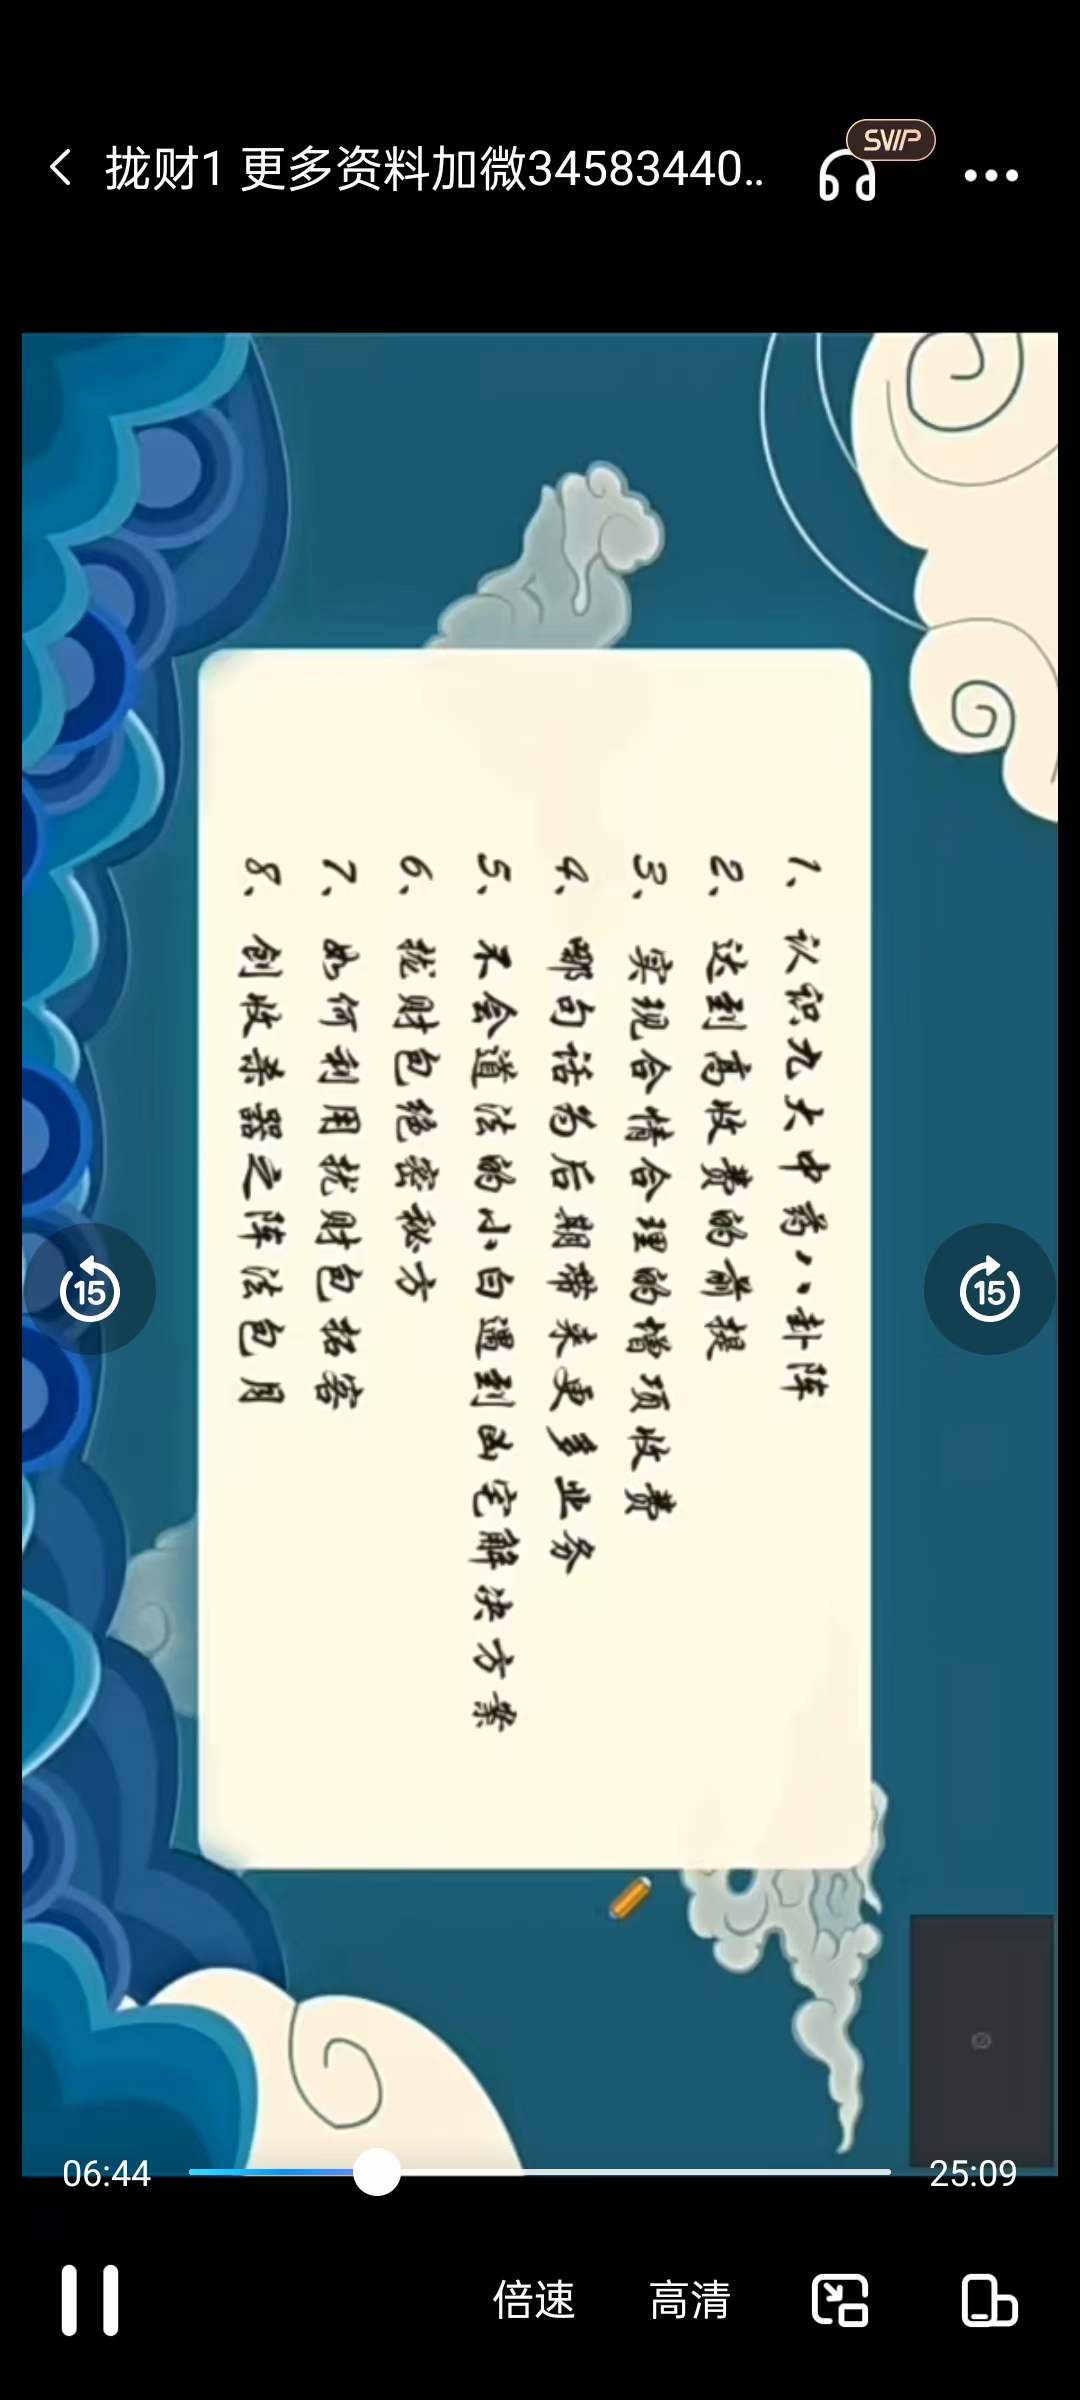 拢财1 更多资料加微34583440..
SVIP
1、认识九大中药八卦阵
2、达到高收费的前提
3、实现合情合理的增项收费
4、哪句话为后期带来更多业务
5、不会道法的小白遇到凶宅解决方案
6、拢财包绝密秘方
7、如何利用拢财包招客
8、创收杀器之阵法包月
15
15
06:44
25:09
倍速
高清